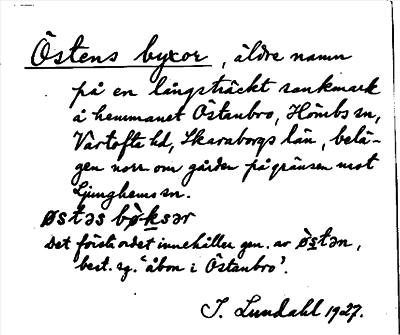 Östens byxor, äldre namn
på en långsträckt sankmark
å hemmanet Östanbro, Hömbs sn,
Vartofta hd, Skaraborgs län, belä-
gen norr om gården på gränsen mot
Ljunghems sn.
østəs bò̀ksər
Det första ordet innehåller gen. av østən,
best. sg. "åbon i Östanbro".
I. Lundahl 1927.